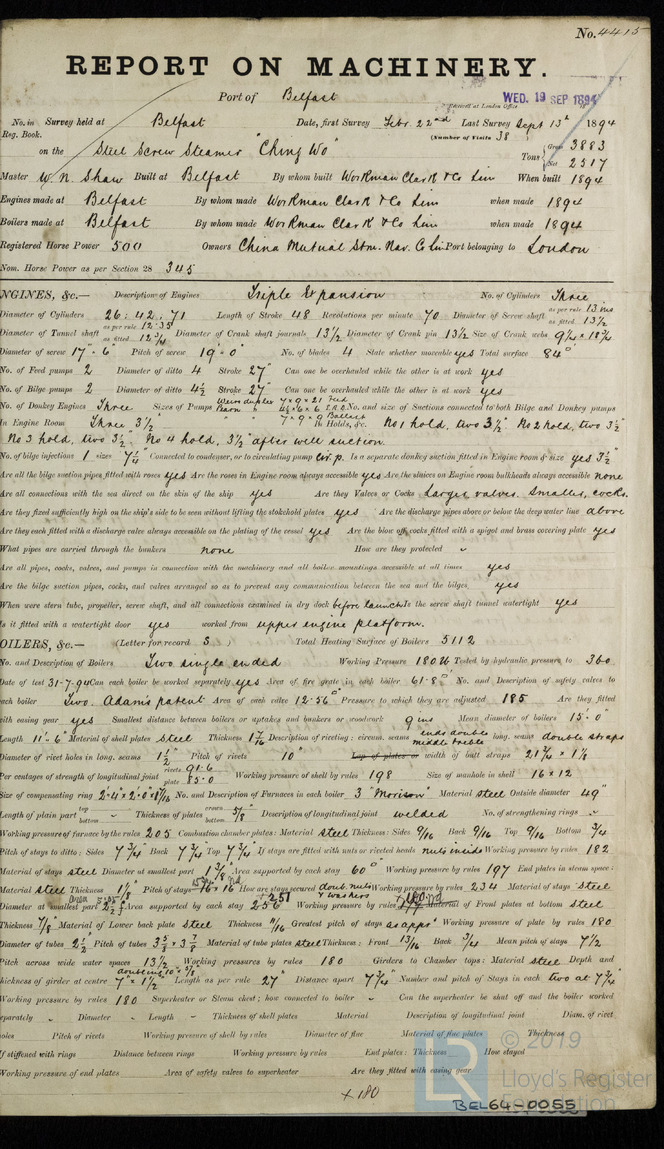 No. 4415
REPORT ON MACHINERY.
Port of Belfast
Received at London Office WED. 19 SEP 1894
No. in Survey held at Belfast Date, first Survey Febr. 22nd Last Survey Sept 13th 1894
Reg. Book. (Number of Visits 38)
on the Steel Screw Steamer "Ching Wo" Tons Gross 3883 Net 2517
Master W. N. Shaw Built at Belfast By whom built Workman Clark & Co Lim When built 1894
Engines made at Belfast By whom made Workman Clark & Co Lim when made 1894
Boilers made at Belfast By whom made Workman Clark & Co Lim when made 1894
Registered Horse Power 500 Owners China Mutual Stm. Nav. Co Lim Port belonging to London
Nom. Horse Power as per Section 28 345
NGINES, &c.— Description of Engines Triple Expansion No. of Cylinders Three
Diameter of Cylinders 26; 42; 71 Length of Stroke 48 Revolutions per minute 70 Diameter of Screw shaft as per rule 13 ins as fitted 13 1/2
Diameter of Tunnel shaft as per rule 12.35 as fitted 12 3/4 Diameter of Crank shaft journals 13 1/2 Diameter of Crank pin 13 1/2 Size of Crank webs 9 1/4 x 18 3/4
Diameter of screw 17" - 6" Pitch of screw 19' - 0" No. of blades 4 State whether moveable yes Total surface 84
No. of Feed pumps 2 Diameter of ditto 4 Stroke 27" Can one be overhauled while the other is at work yes
No. of Bilge pumps 2 Diameter of ditto 4 1/2 Stroke 27" Can one be overhauled while the other is at work yes
No. of Donkey Engines Three Sizes of Pumps Weirs duplex 7 x 9 x 21 Fed No. and size of Suctions connected to both Bilge and Donkey pumps
In Engine Room Three, 3 1/2" 7 x 9 x 9 Ballast In Holds, &c. No 1 hold, two 3 1/2" No 2 hold, two 3 1/2
No 3 hold, two 3 1/2. No 4 hold, 3 1/2" after well suction.
No. of bilge injections 1 sizes 7 1/4 Connected to condenser, or to circulating pump Cir. p. Is a separate donkey suction fitted in Engine room & size yes 3 1/2"
Are all the bilge suction pipes fitted with roses yes Are the roses in Engine room always accessible yes Are the sluices on Engine room bulkheads always accessible none
Are all connections with the sea direct on the skin of the ship yes Are they Valves or Cocks Larger valves. Smaller, cocks.
Are they fixed sufficiently high on the ship's side to be seen without lifting the stokehold plates yes Are the discharge pipes above or below the deep water line above
Are they each fitted with a discharge valve always accessible on the plating of the vessel yes Are the blow off cocks fitted with a spigot and brass covering plate yes
What pipes are carried through the bunkers none How are they protected "
Are all pipes, cocks, valves, and pumps in connection with the machinery and all boiler mountings accessible at all times yes
Are the bilge suction pipes, cocks, and valves arranged so as to prevent any communication between the sea and the bilges yes
When were stern tube, propeller, screw shaft, and all connections examined in dry dock before launch Is the screw shaft tunnel watertight yes
Is it fitted with a watertight door yes worked from upper engine platform.
OILERS, &c.— (Letter for record S ) Total Heating Surface of Boilers 5112
No. and Description of Boilers Two single ended Working Pressure 180 lb Tested by hydraulic pressure to 360
Date of test 31-7-94 Can each boiler be worked separately yes Area of fire grate in each boiler 61.8 No. and Description of safety valves to
each boiler Two. Adam's patent Area of each valve 12.56" Pressure to which they are adjusted 185 Are they fitted
with easing gear yes Smallest distance between boilers or uptakes and bunkers or woodwork 9 ins Mean diameter of boilers 15' - 0"
Length 11' - 6" Material of shell plates Steel Thickness 1 7/16 Description of riveting: circum. seams ends double middle treble long. seams double straps
Diameter of rivet holes in long. seams 1 1/2" Pitch of rivets 10" Lap of plates or width of butt straps 21 3/4 x 1 1/8
Per centages of strength of longitudinal joint rivets 91.6 plate 85.0 Working pressure of shell by rules 198 Size of manhole in shell 16 x 12
Size of compensating ring 2'4" x 2'0" x 1 7/16 No. and Description of Furnaces in each boiler 3 "Morison" Material steel Outside diameter 49"
Length of plain part top bottom " Thickness of plates crown bottom 5/8" Description of longitudinal joint welded No. of strengthening rings "
Working pressure of furnace by the rules 205 Combustion chamber plates: Material steel Thickness: Sides 9/16 Back 9/16 Top 9/16 Bottom 3/4
Pitch of stays to ditto: Sides 7 3/4" Back 7 3/4" Top 7 3/4" If stays are fitted with nuts or riveted heads nuts inside Working pressure by rules 182
Material of stays steel Diameter at smallest part 1 3/8" Area supported by each stay 60 Working pressure by rules 197 End plates in steam space:
Material steel Thickness 1 1/8" Pitch of stays 16 x 16 How are stays secured doub. nuts & washers Working pressure by rules 234 Material of stays steel
Diameter at smallest part Area supported by each stay 256 251 Working pressure by rules Material of Front plates at bottom steel
Thickness 7/8" Material of Lower back plate steel Thickness 11/16 Greatest pitch of stays as appd Working pressure of plate by rules 180
Diameter of tubes 2 1/2" Pitch of tubes 3 5/8 x 3 7/8 Material of tube plates steel Thickness: Front 13/16 Back 3/4 Mean pitch of stays 7 1/2
Pitch across wide water spaces 13 1/2" Working pressures by rules 180 Girders to Chamber tops: Material steel Depth and
thickness of girder at centre 7" x 1 1/2 doubling 10" x 5/8 Length as per rule 27" Distance apart 7 3/4" Number and pitch of Stays in each two at 7 3/4"
Working pressure by rules 180 Superheater or Steam chest; how connected to boiler " Can the superheater be shut off and the boiler worked
separately " Diameter " Length " Thickness of shell plates Material Description of longitudinal joint Diam. of rivet
holes Pitch of rivets Working pressure of shell by rules Diameter of flue Material of flue plates Thickness
If stiffened with rings Distance between rings Working pressure by rules End plates: Thickness How stayed
Working pressure of end plates Area of safety valves to superheater Are they fitted with easing gear
+ 180
BEL64-0055
© 2019
Lloyd's Register
Foundation